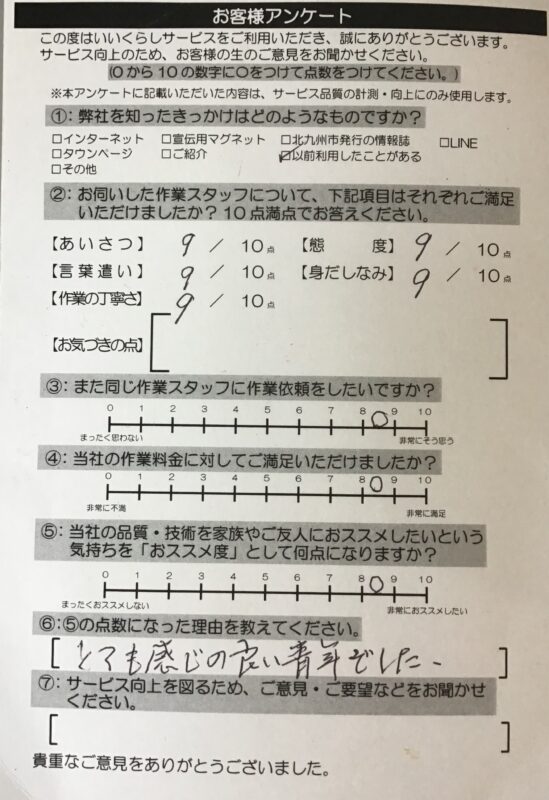 お客様アンケート
この度はいいくらしサービスをご利用いただき、誠にありがとうございます。
サービス向上のため、お客様の生のご意見をお聞かせください。
(0から10の数字に○をつけて点数をつけてください。)
※本アンケートに記載いただいた内容は、サービス品質の計測・向上にのみ使用します。
①：弊社を知ったきっかけはどのようなものですか？
□インターネット □宣伝用マグネット □北九州市発行の情報誌 □LINE
□タウンページ □ご紹介 ☑以前利用したことがある
□その他
②：お伺いした作業スタッフについて、下記項目はそれぞれご満足
いただけましたか？10点満点でお答えください。
【あいさつ】 9 / 10点 【態度】 9 / 10点
【言葉遣い】 9 / 10点 【身だしなみ】 9 / 10点
【作業の丁寧さ】 9 / 10点
【お気づきの点】
③：また同じ作業スタッフに作業依頼をしたいですか？
0 1 2 3 4 5 6 7 8 9 10
まったく思わない 非常にそう思う
④：当社の作業料金に対してご満足いただけましたか？
0 1 2 3 4 5 6 7 8 9 10
非常に不満 非常に満足
⑤：当社の品質・技術を家族やご友人におススメしたいという
気持ちを「おススメ度」として何点になりますか？
0 1 2 3 4 5 6 7 8 9 10
まったくおススメしない 非常におススメしたい
⑥：⑤の点数になった理由を教えてください。
とても感じの良い青年でした。
⑦：サービス向上を図るため、ご意見・ご要望などをお聞かせ
ください。
貴重なご意見をありがとうございました。